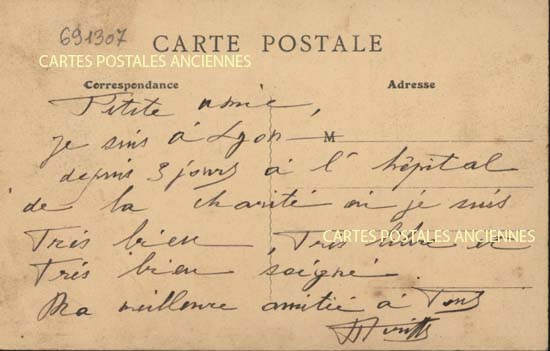 691307
CARTE POSTALE
CARTES POSTALES ANCIENNES
Correspondance Adresse
Petite amie,
je suis à Lyon M
depuis 3 jours à l'hôpital
de la charité où je suis
Très bien, Très et
CARTES POSTALES ANCIENNES
Très bien soigné.
Ma meilleure amitié à Tous